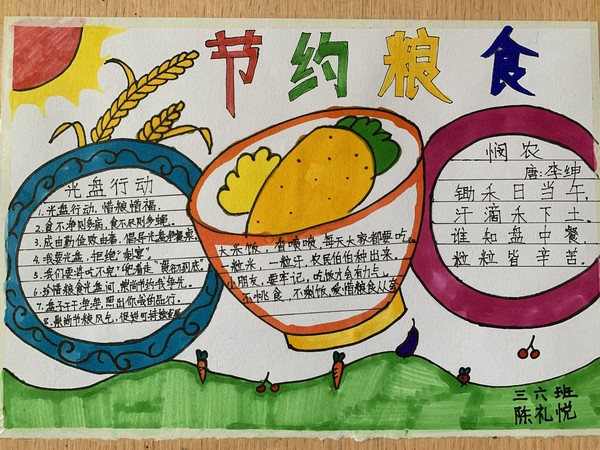 节约粮食
光盘行动
1.光盘行动,惜粮惜福.
2.食不净则多病,食不尽则多
3.成由勤俭败由奢,倡导光盘
4.我要光盘,拒绝"剩宴".
5.我们要讲吃不完"兜着走"
6.珍惜粮食光盘间,崇尚节约我争先.
7.盘子干干净净,照出你我的品行.
8.崇尚节粮风气,促进可持续发展
大米饭,香喷喷,每天大家都要吃.
一粒米,一粒汗,农民伯伯种出来.
小朋友,要牢记,吃饭才会有力
不挑食,不剩饭,爱惜粮食从
悯农
唐:李绅
锄禾日当午,
汗滴禾下土.
谁知盘中餐,
粒粒皆辛苦.
三六班
陈礼悦